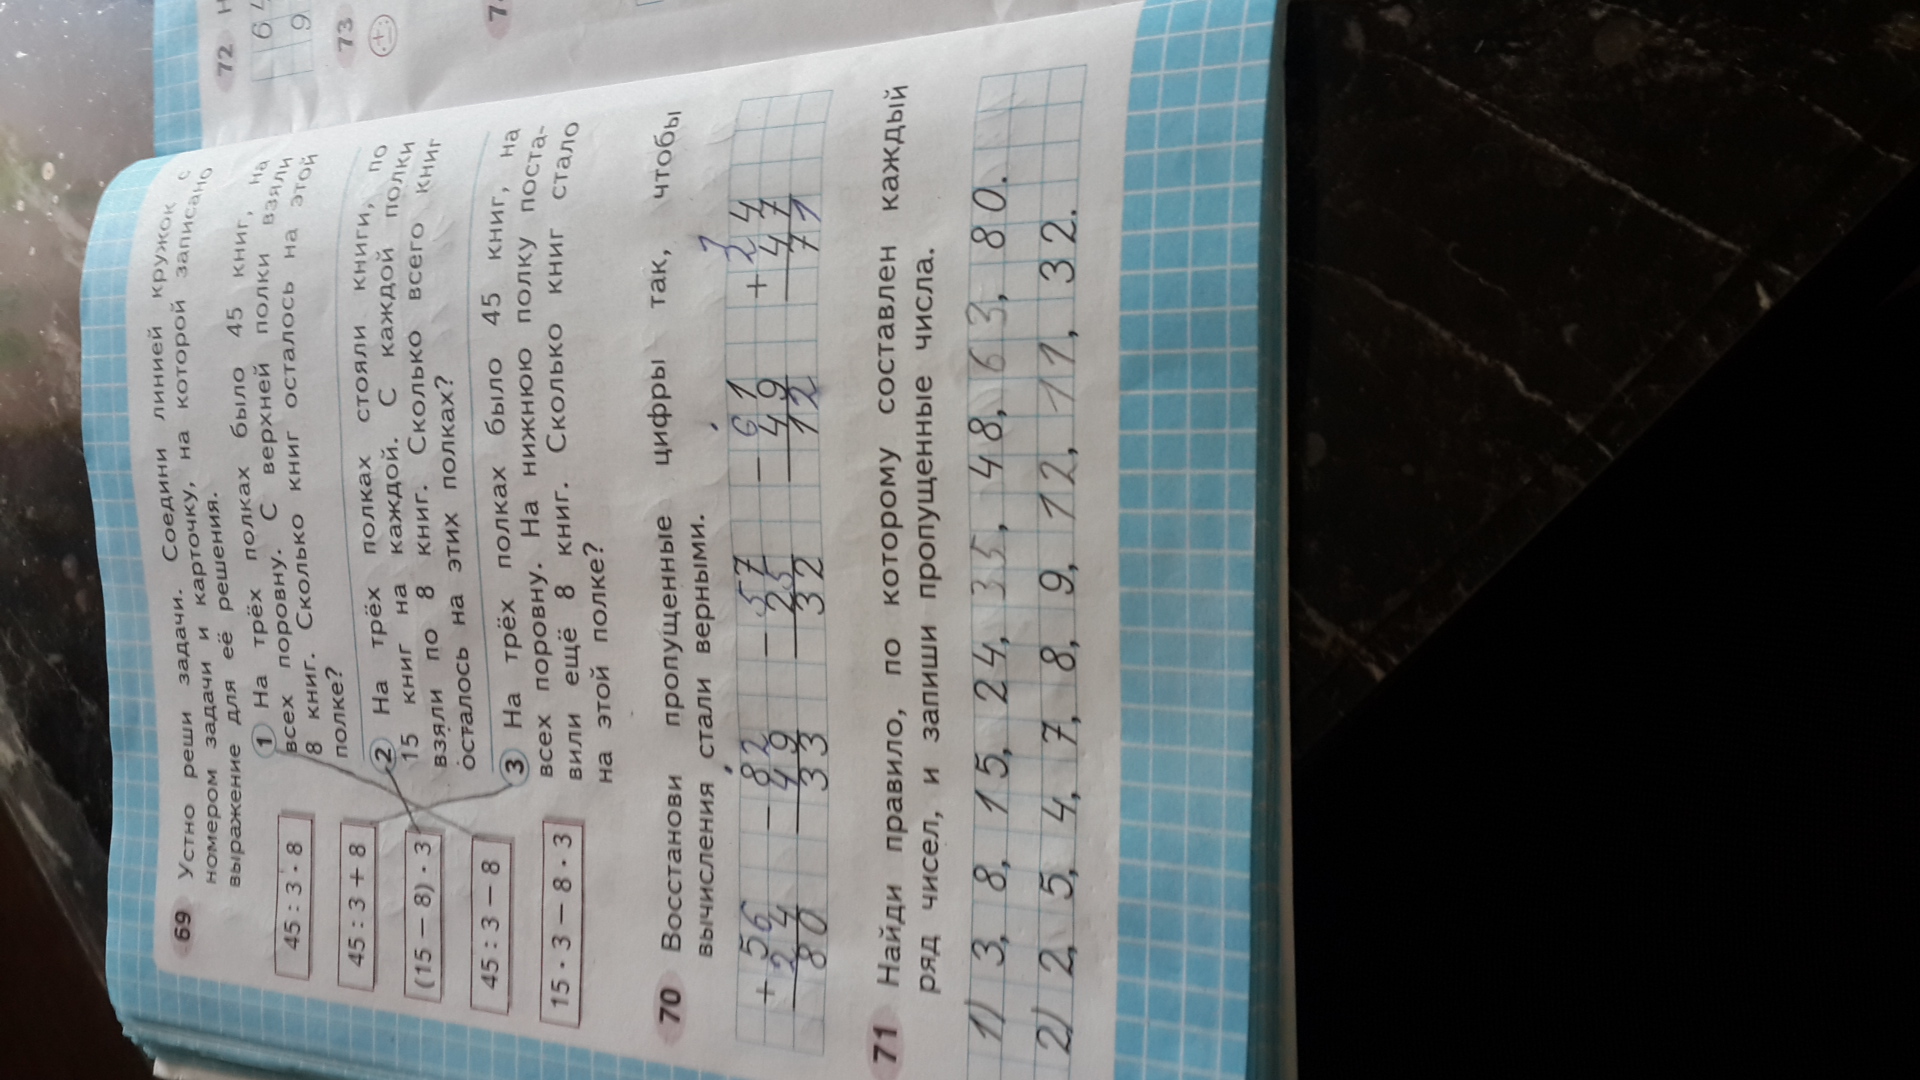 69 Устно реши задачи. Соедини линией кружок с
номером задачи и карточку, на которой записано
выражение для её решения.
45 : 3 · 8
45 : 3 + 8
(15 – 8) · 3
45 : 3 – 8
15 · 3 – 8 · 3
1 На трёх полках было 45 книг, на
всех поровну. С верхней полки взяли
8 книг. Сколько книг осталось на этой
полке?
2 На трёх полках стояли книги, по
15 книг на каждой. С каждой полки
взяли по 8 книг. Сколько всего книг
осталось на этих полках?
3 На трёх полках было 45 книг, на
всех поровну. На нижнюю полку поста-
вили ещё 8 книг. Сколько книг стало
на этой полке?
70 Восстанови пропущенные цифры так, чтобы
вычисления стали верными.
+ 56 – 82 – 57 – 61 + 24
24 49 25 49 47
80 33 32 12 71
71 Найди правило, по которому составлен каждый
ряд чисел, и запиши пропущенные числа.
1) 3, 8, 15, 24, 35, 48, 63, 80.
2) 2, 5, 4, 7, 8, 9, 12, 11, 32.
72 Н
6
9
73